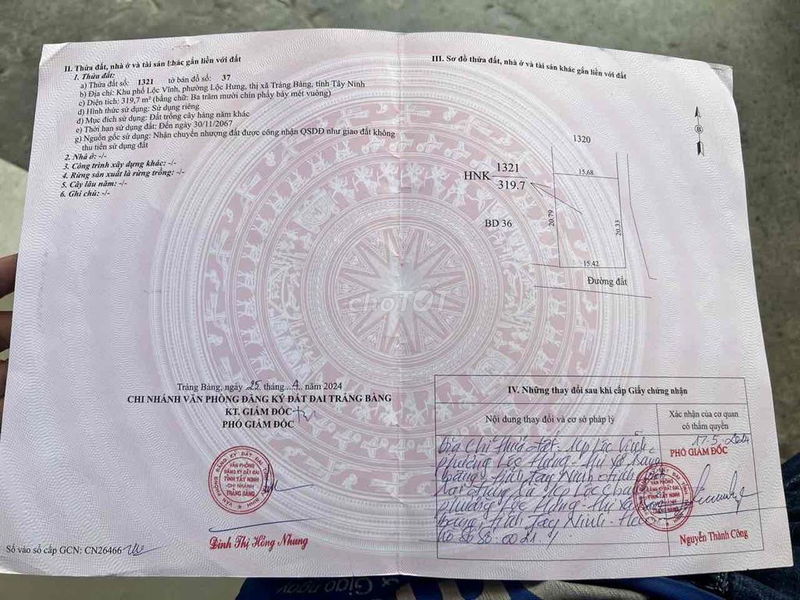 II. Thửa đất, nhà ở và tài sản khác gắn liền với đất
1. Thửa đất:
a) Thửa đất số: 1321 tờ bản đồ số: 37
b) Địa chỉ: Khu phố Lộc Vĩnh, phường Lộc Hưng, thị xã Trảng Bàng, tỉnh Tây Ninh
c) Diện tích: 319,7 m² (bằng chữ: Ba trăm mười chín phẩy bảy mét vuông)
d) Hình thức sử dụng: Sử dụng riêng
đ) Mục đích sử dụng: Đất trồng cây hàng năm khác
e) Thời hạn sử dụng đất: Đến ngày 30/11/2067
g) Nguồn gốc sử dụng: Nhận chuyển nhượng đất được công nhận QSDĐ như giao đất không
thu tiền sử dụng đất
2. Nhà ở: -/-
3. Công trình xây dựng khác: -/-
4. Rừng sản xuất là rừng trồng: -/-
5. Cây lâu năm: -/-
6. Ghi chú: -/-
Trảng Bàng, ngày 25 tháng 4 năm 2024
CHI NHÁNH VĂN PHÒNG ĐĂNG KÝ ĐẤT ĐAI TRẢNG BÀNG
KT. GIÁM ĐỐC
PHÓ GIÁM ĐỐC
VĂN PHÒNG
ĐĂNG KÝ ĐẤT ĐAI
TỈNH TÂY NINH
CHI NHÁNH
TRẢNG BÀNG
Đinh Thị Hồng Nhung
Số vào sổ cấp GCN: CN26466
III. Sơ đồ thửa đất, nhà ở và tài sản khác gắn liền với đất
B
1320
HNK
1321
319.7
15.68
20.79
20.33
BD 36
15.42
Đường đất
choTỐT
IV. Những thay đổi sau khi cấp Giấy chứng nhận
Nội dung thay đổi và cơ sở pháp lý
Xác nhận của cơ quan
có thẩm quyền
Địa chỉ thửa đất: Kp Lộc Vĩnh,
phường Lộc Hưng, thị xã Trảng
Bàng, tỉnh Tây Ninh
Kp Lộc
phường Lộc Hưng, thị xã
Bàng, tỉnh Tây Ninh
hồ sơ số 0021
17-5-2024
PHÓ GIÁM ĐỐC
Nguyễn Thành Công
Giao ngay